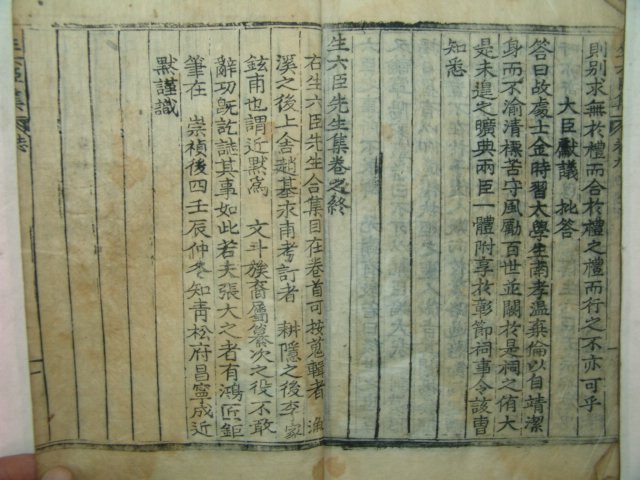 則別求無於禮而合於禮之禮而行之不亦可乎
大臣獻議 批答
答曰故處士金時習太學生南孝溫棄倫以自靖潔
身而不渝淸標苦守風勵百世並關於是祠之侑大
是未遑之曠典兩臣一體附享於彰節祠事令該曹
知悉
生六臣先生集卷之終
右生六臣先生合集目在卷首可按蒐輯者 漁
溪之後上舍趙基永甫考訂者 耕隱之後李家
鉉甫也謂近默爲 文斗族裔屬纂次之役不敢
辭功旣訖誌其事如此若夫張大之者有鴻匠鉅
筆在 崇禎後四壬辰仲冬知靑松府昌寧成近
默謹識
生六臣集